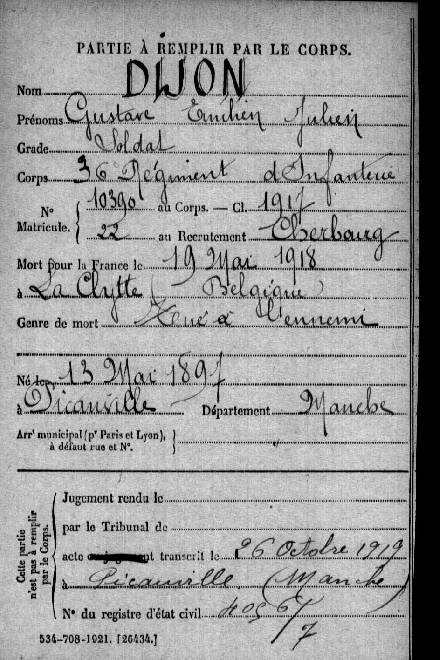 PARTIE À REMPLIR PAR LE CORPS.
Nom DIJON
Prénoms Gustave Emilien Julien
Grade Soldat
Corps 36e Régiment d'Infanterie
N° Matricule. { 10390 au Corps. — Cl. 1917
22 au Recrutement Cherbourg
Mort pour la France le 19 Mai 1918
à La Clytte (Belgique)
Genre de mort Tué à l'ennemi
Né le 13 Mai 1897
à Picauville Département Manche
Arrt municipal (pr Paris et Lyon), à défaut rue et N°. }
Cette partie n'est pas à remplir par le Corps. {
Jugement rendu le
par le Tribunal de
acte transcrit le 26 Octobre 1919
à Picauville (Manche)
N° du registre d'état civil
534-708-1921. [26434.]